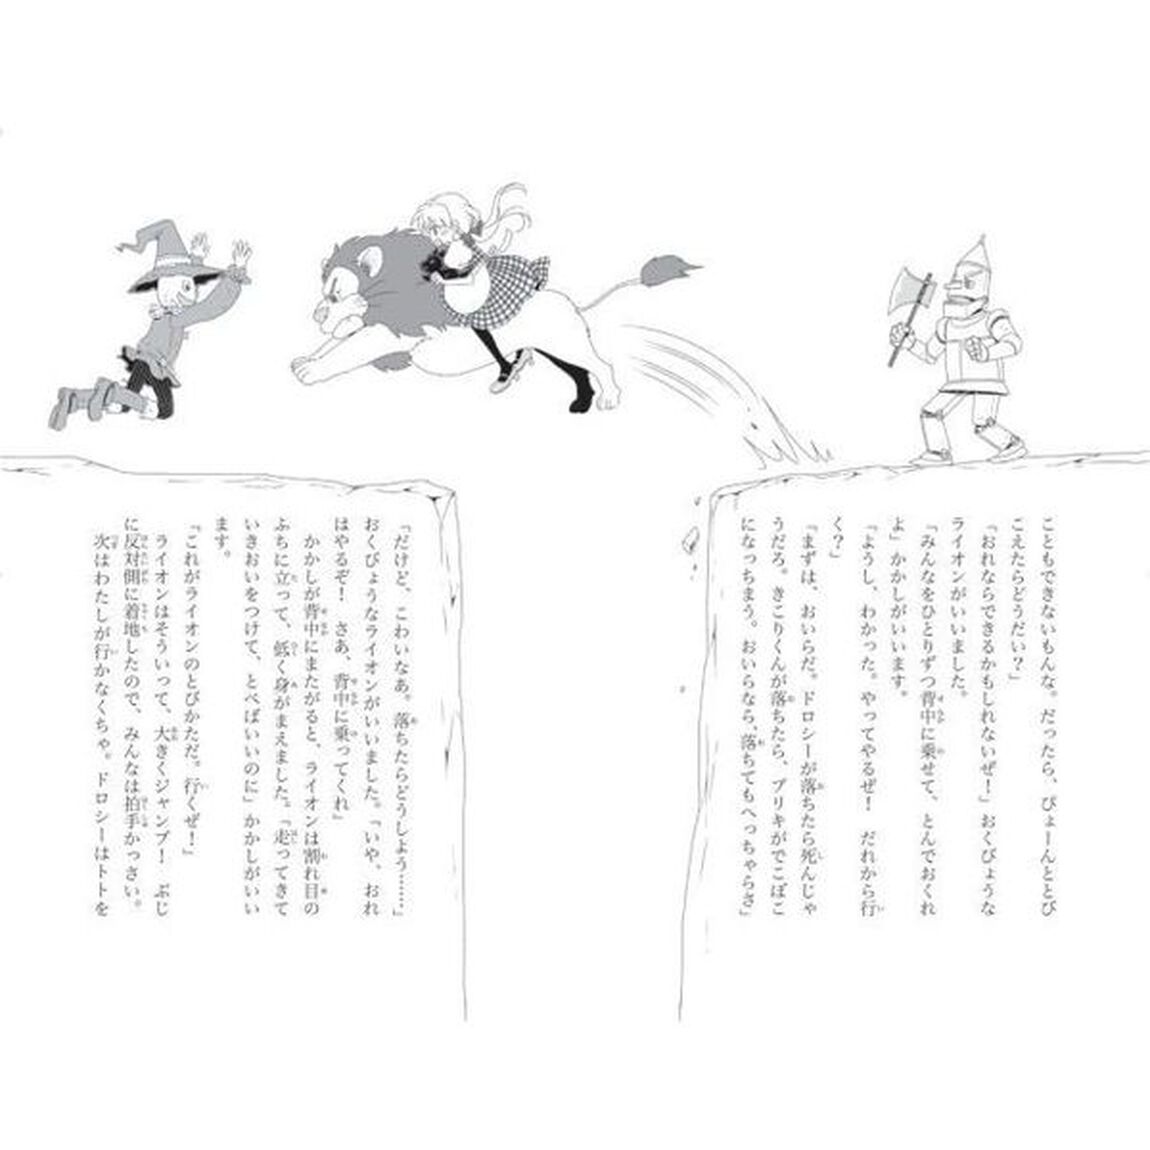 こともできないもんな。だったら、ぴょーんととび
こえたらどうだい？」
「おれならできるかもしれないぜ！」おくびょうな
ライオンがいいました。
「みんなをひとりずつ背中に乗せて、とんでおくれ
よ」かかしがいいます。
「ようし、わかった。やってやるぜ！　だれから行
く？」
「まずは、おいらだ。ドロシーが落ちたら死んじゃ
うだろ。きこりくんが落ちたら、ブリキがでこぼこ
になっちまう。おいらなら、落ちてもへっちゃらさ」
「だけど、こわいなあ。落ちたらどうしよう……」
おくびょうなライオンがいいました。「いや、おれ
はやるぞ！　さあ、背中に乗ってくれ」
かかしが背中にまたがると、ライオンは割れ目の
ふちに立って、低く身がまえました。「走ってきて
いきおいをつけて、とべばいいのに」かかしがいい
ます。
「これがライオンのとびかただ。行くぜ！」
ライオンはそういって、大きくジャンプ！　ぶじ
に反対側に着地したので、みんなは拍手かっさい。
次はわたしが行かなくちゃ。ドロシーはトトを